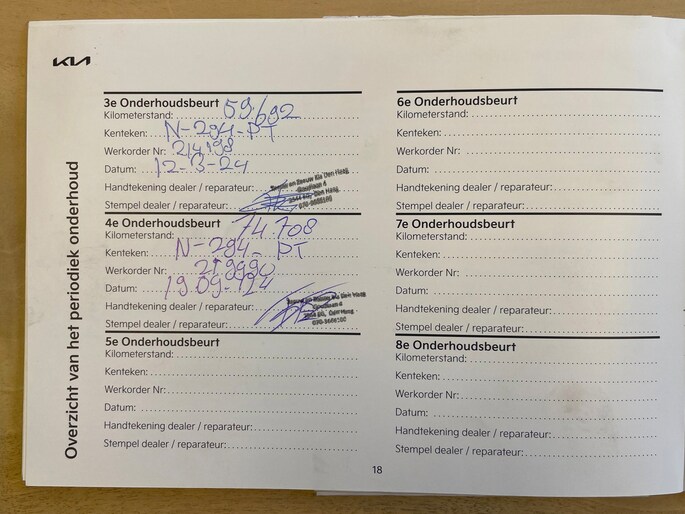 KIA
Overzicht van het periodiek onderhoud
3e Onderhoudsbeurt
Kilometerstand: 59.692
Kenteken: N-294-PT
Werkorder Nr: 214198
Datum: 12-3-24
Handtekening dealer / reparateur:
Stempel dealer / reparateur:
Zeeuw en Zeeuw Kia Den Haag
4e Onderhoudsbeurt
Kilometerstand: 74.708
Kenteken: N-294-PT
Werkorder Nr: 219990
Datum: 19.09-'24
Handtekening dealer / reparateur:
Stempel dealer / reparateur:
Zeeuw en Zeeuw Kia Den Haag
5e Onderhoudsbeurt
Kilometerstand:
Kenteken:
Werkorder Nr:
Datum:
Handtekening dealer / reparateur:
Stempel dealer / reparateur:
6e Onderhoudsbeurt
Kilometerstand:
Kenteken:
Werkorder Nr:
Datum:
Handtekening dealer / reparateur:
Stempel dealer / reparateur:
7e Onderhoudsbeurt
Kilometerstand:
Kenteken:
Werkorder Nr:
Datum:
Handtekening dealer / reparateur:
Stempel dealer / reparateur:
8e Onderhoudsbeurt
Kilometerstand:
Kenteken:
Werkorder Nr:
Datum:
Handtekening dealer / reparateur:
Stempel dealer / reparateur:
18